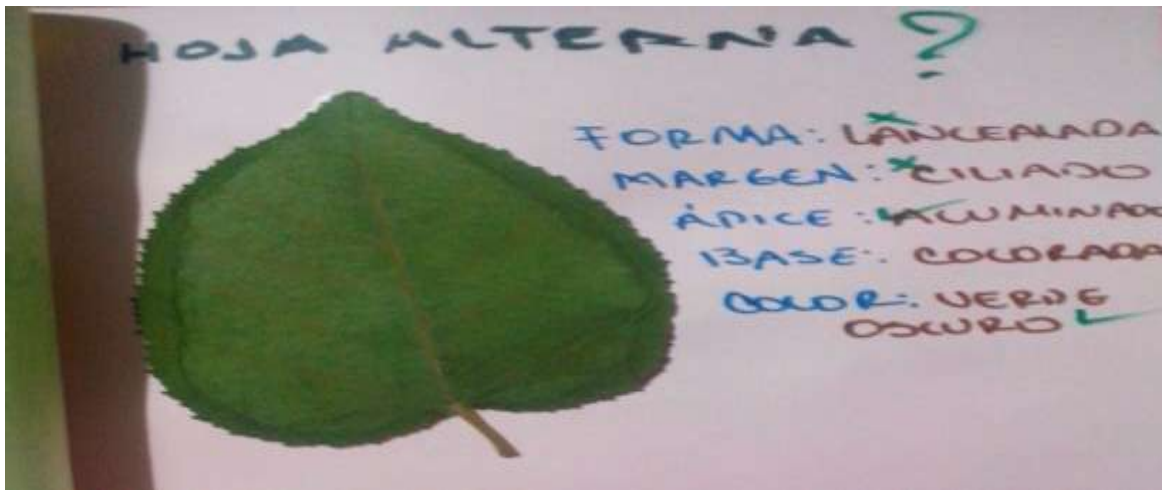 HOJA ALTERNA ?
FORMA: LANCEALADA
MARGEN: CILIADO
ÁPICE: ACUMINADO
BASE: COLORADA
COLOR: VERDE
OSCURO